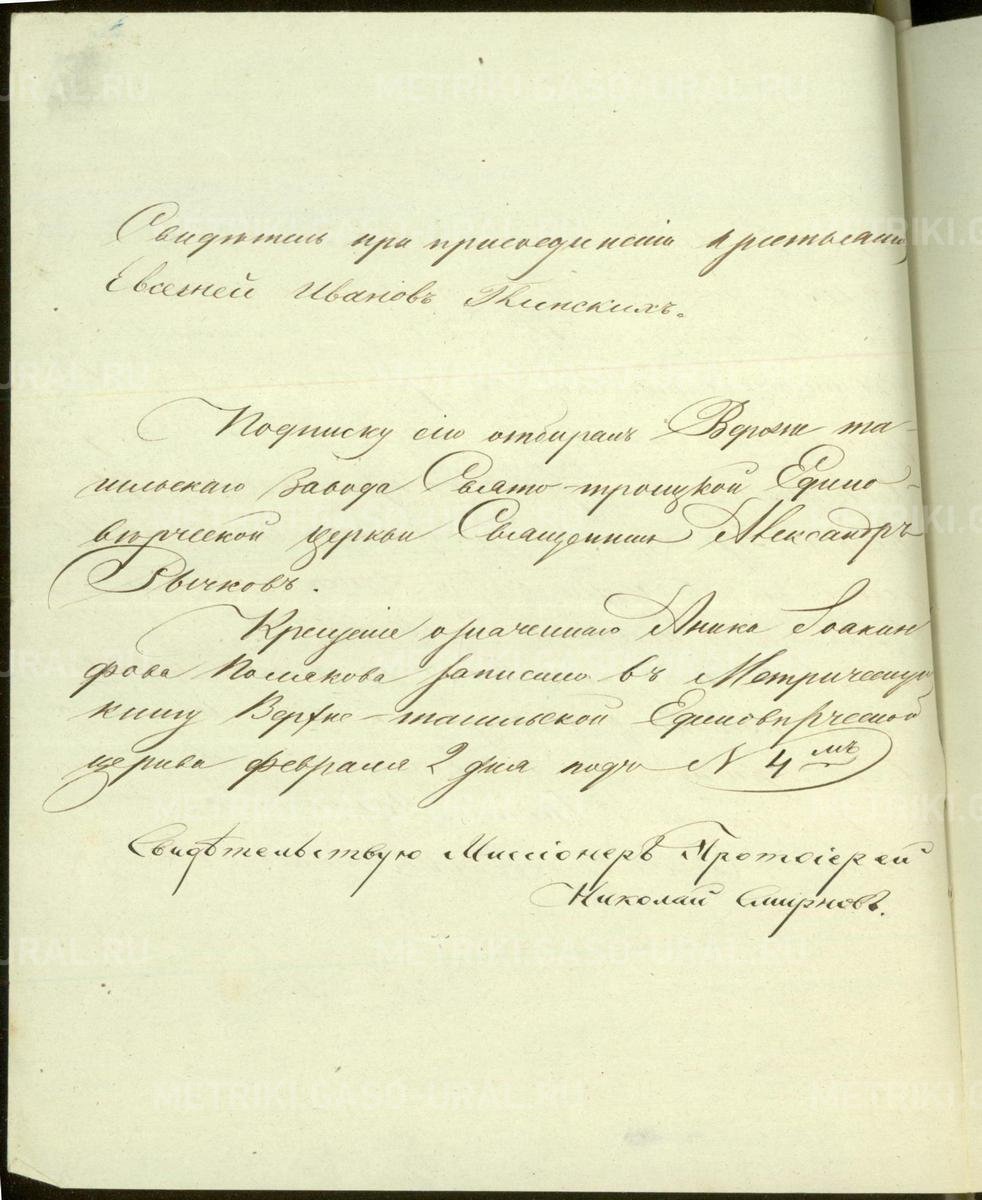 Свидѣтель при присоединенiи крестьянинъ
Евсегней Ивановъ
Подписку сiю отбиралъ Верхне та-
гильскаго завода Свято-троицкой Едино-
вѣрческой церкви Священникъ Александръ
Рычковъ.
Крещенiе означеннаго Аника Iоакин
фова Полякова записано въ Метрическую
книгу Верхне-тагильской Единовѣрческой
церкви февраля 2 дня подъ N 4мъ
Свидѣтельствую Миссiонеръ Протоiерей
Николай Смирновъ.
METRIKI.GASO-URAL.RU